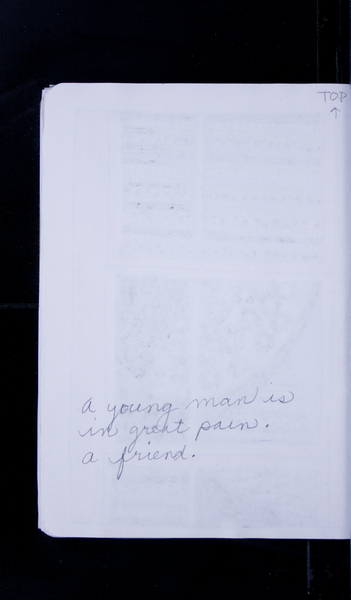 TOP
↑
a young man is
in great pain.
a friend.